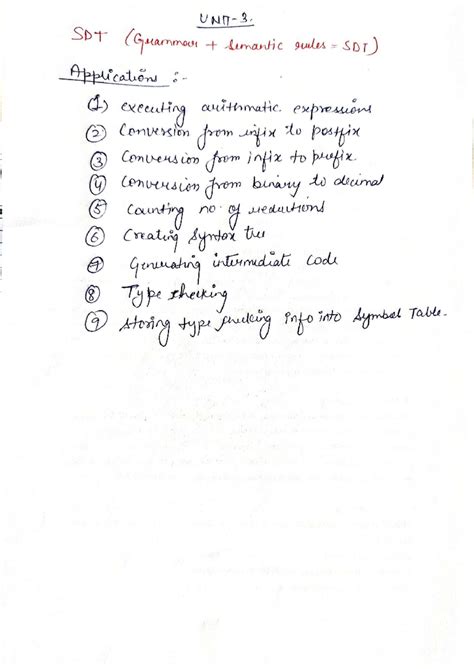 UNIT-3.
SDT (Grammar + Semantic rules = SDT)
Applications :-
(1) executing arithmatic expressions
(2) Conversion from infix to postfix
(3) Conversion from infix to prefix.
(4) Conversion from binary to decimal
(5) Counting no. of reductions
(6) Creating Syntax tree
(7) Generating intermediate code
(8) Type checking
(9) storing type checking info into Symbol Table.